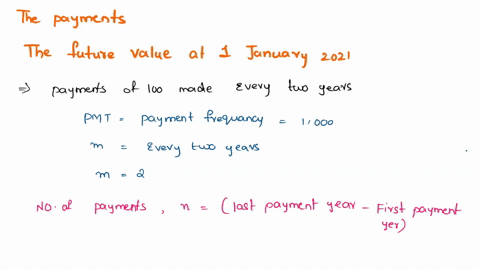 The payments
The future value at 1 January 2021
⇒ payments of 100 made Every two years
PMT = payment frequancy = 1,000
m = Every two years
m = 2
NO. of payments, n = (last payment year - First payment
yer)